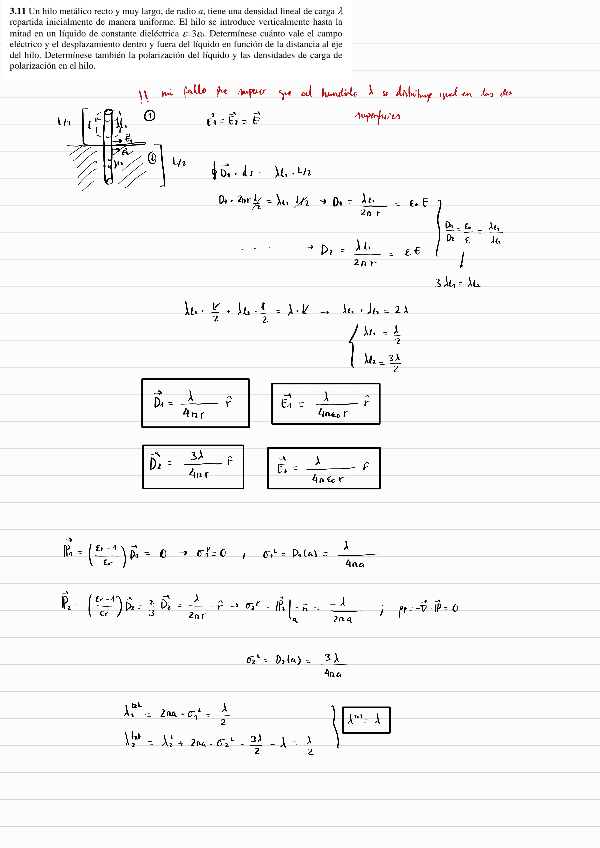 3.11 Un hilo metálico recto y muy largo, de radio a, tiene una densidad lineal de carga λ
repartida inicialmente de manera uniforme. El hilo se introduce verticalmente hasta la
mitad en un líquido de constante dieléctrica ε=3ε₀. Determínese cuánto vale el campo
eléctrico y el desplazamiento dentro y fuera del líquido en función de la distancia al eje
del hilo. Determínese también la polarización del líquido y las densidades de carga de
polarización en el hilo.
!! mi fallo fue suponer que al hundirlo λ se distribuye igual en las dos
superficies
L/2 ① E₁ = E₂ = E
② L/2
∮ D₁ · ds = λl₁ · L/2
D₁ · 2πr L/2 = λl₁ L/2 → D₁ = λl₁ / 2πr = ε₀ E
D₁/D₂ = ε₀/ε = λl₁/λl₂
. . . . → D₂ = λl₂ / 2πr = ε E
3 λl₁ = λl₂
λl₁ · L/2 + λl₂ · L/2 = λ · L → λl₁ + λl₂ = 2λ
λl₁ = λ/2
λl₂ = 3λ/2
D₁ = λ / 4πr r̂
E₁ = λ / 4πε₀ r r̂
D₂ = 3λ / 4πr r̂
E₂ = λ / 4πε₀ r r̂
P₁ = (εr-1 / εr) D₁ = 0 → σ₁ᵖ = 0 , σ₁ᴸ = D₁(a) = λ / 4πa
P₂ = (εr-1 / εr) D₂ = 2/3 D₂ = λ / 2πr r̂ → σ₂ᵖ = P₂|a · n = -λ / 2πa ; ρp = -∇ · P = 0
σ₂ᴸ = D₂(a) = 3λ / 4πa
λ₁ᵗᵒᵗ = 2πa · σ₁ᴸ = λ/2
λᵗᵒᵗ = λ
λ₂ᵗᵒᵗ = λ₂ + 2πa · σ₂ᴸ = 3λ/2 - λ = λ/2